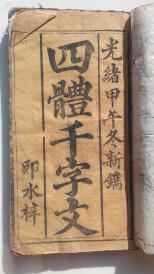 光緒甲午冬新鐫
四體千字文
卬水梓